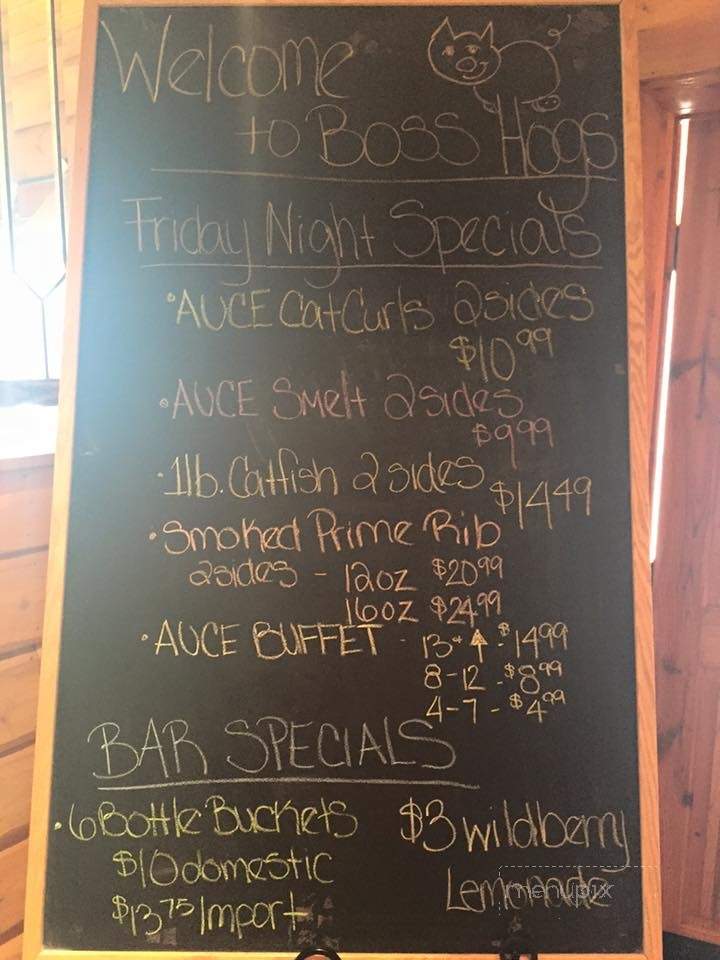 Welcome
to Boss Hogs
Friday Night Specials
• AUCE CatCurls 2 sides
$10.99
• AUCE Smelt 2 sides
$9.99
• 1lb. Catfish 2 sides
$14.49
• Smoked Prime Rib
2 sides - 12oz $20.99
16oz $24.99
• AUCE BUFFET - 13+ ↑ - $14.99
8-12 - $8.99
4-7 - $4.99
BAR SPECIALS
• 6 Bottle Buckets
$10 domestic
$13.75 Import
$3 wildberry
Lemonade
menupix